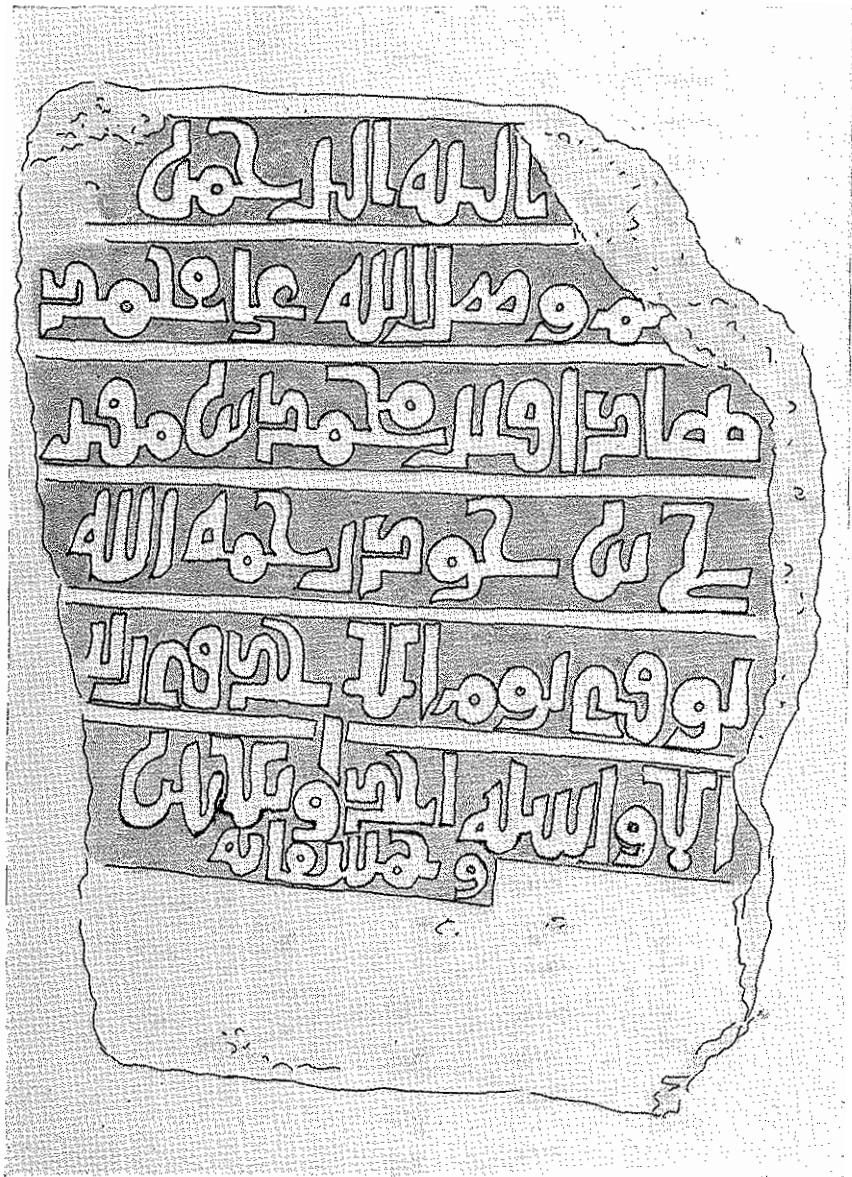 الله الرحمن
يم وصلا الله على محمد
هاذا قبر محمد بن مفر
ج بن حود رحمه الله
توفى يوم الاحد فى
الاول سنه احد وثلثين
وخمس مائه